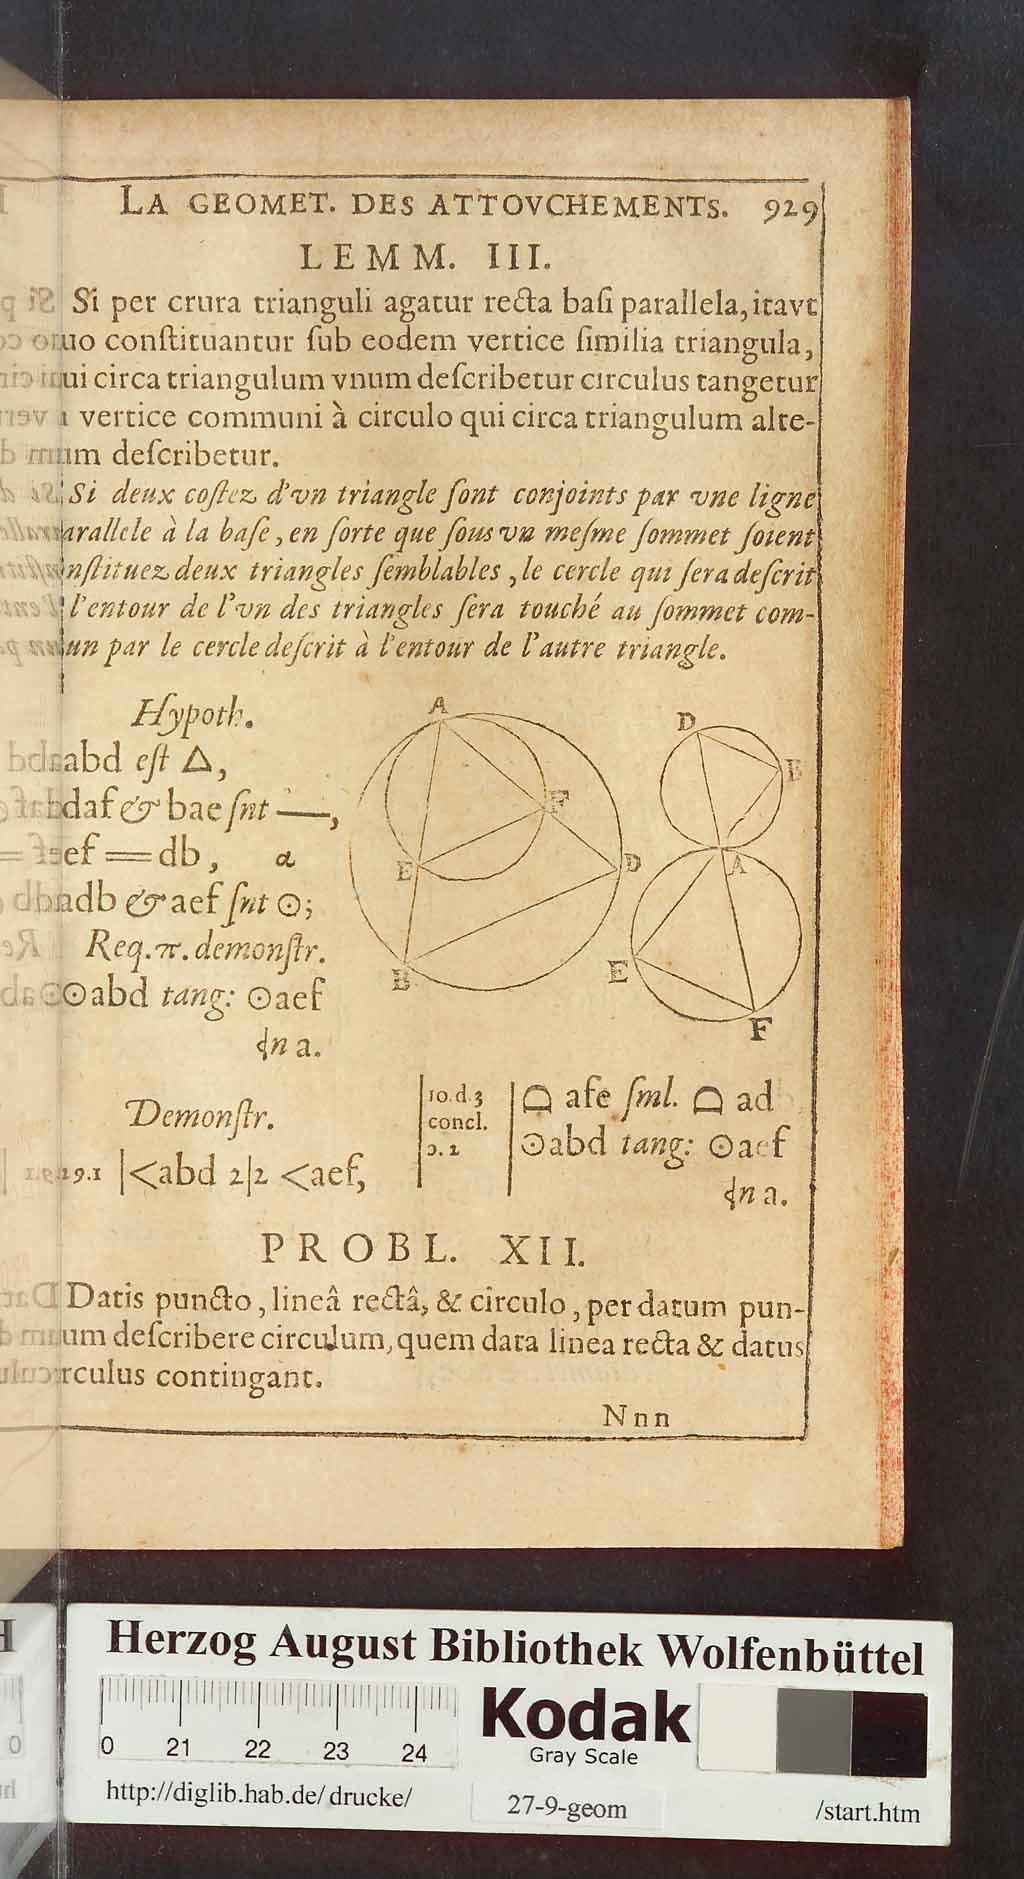 LA GEOMET. DES ATTOVCHEMENTS. 929
LEMM. III.
Si per crura trianguli agatur recta basi parallela, itavt
uo constituantur sub eodem vertice similia triangula,
ui circa triangulum vnum describetur circulus tangetur
vertice communi à circulo qui circa triangulum alte-
um describetur.
Si deux costez d'vn triangle sont conjoints par vne ligne
arallele à la base, en sorte que sous vn mesme sommet soient
nstituez deux triangles semblables, le cercle qui sera descrit
l'entour de l'vn des triangles sera touché au sommet com-
un par le cercle descrit à l'entour de l'autre triangle.
Hypoth.
abd est △,
daf & bae snt —,
ef = db, α
adb & aef snt ⊙;
Req. π. demonstr.
⊙abd tang: ⊙aef
n a.
A
F
E
D
B
D
B
A
E
F
Demonstr.
29.1 |<abd 2|2 <aef,
10.d.3
concl.
afe sml. ad
⊙abd tang: ⊙aef
n a.
PROBL. XII.
Datis puncto, lineâ rectâ, & circulo, per datum pun-
um describere circulum, quem data linea recta & datus
rculus contingant.
Nnn
Herzog August Bibliothek Wolfenbüttel
0 21 22 23 24
Kodak
Gray Scale
http://diglib.hab.de/drucke/ 27-9-geom /start.htm